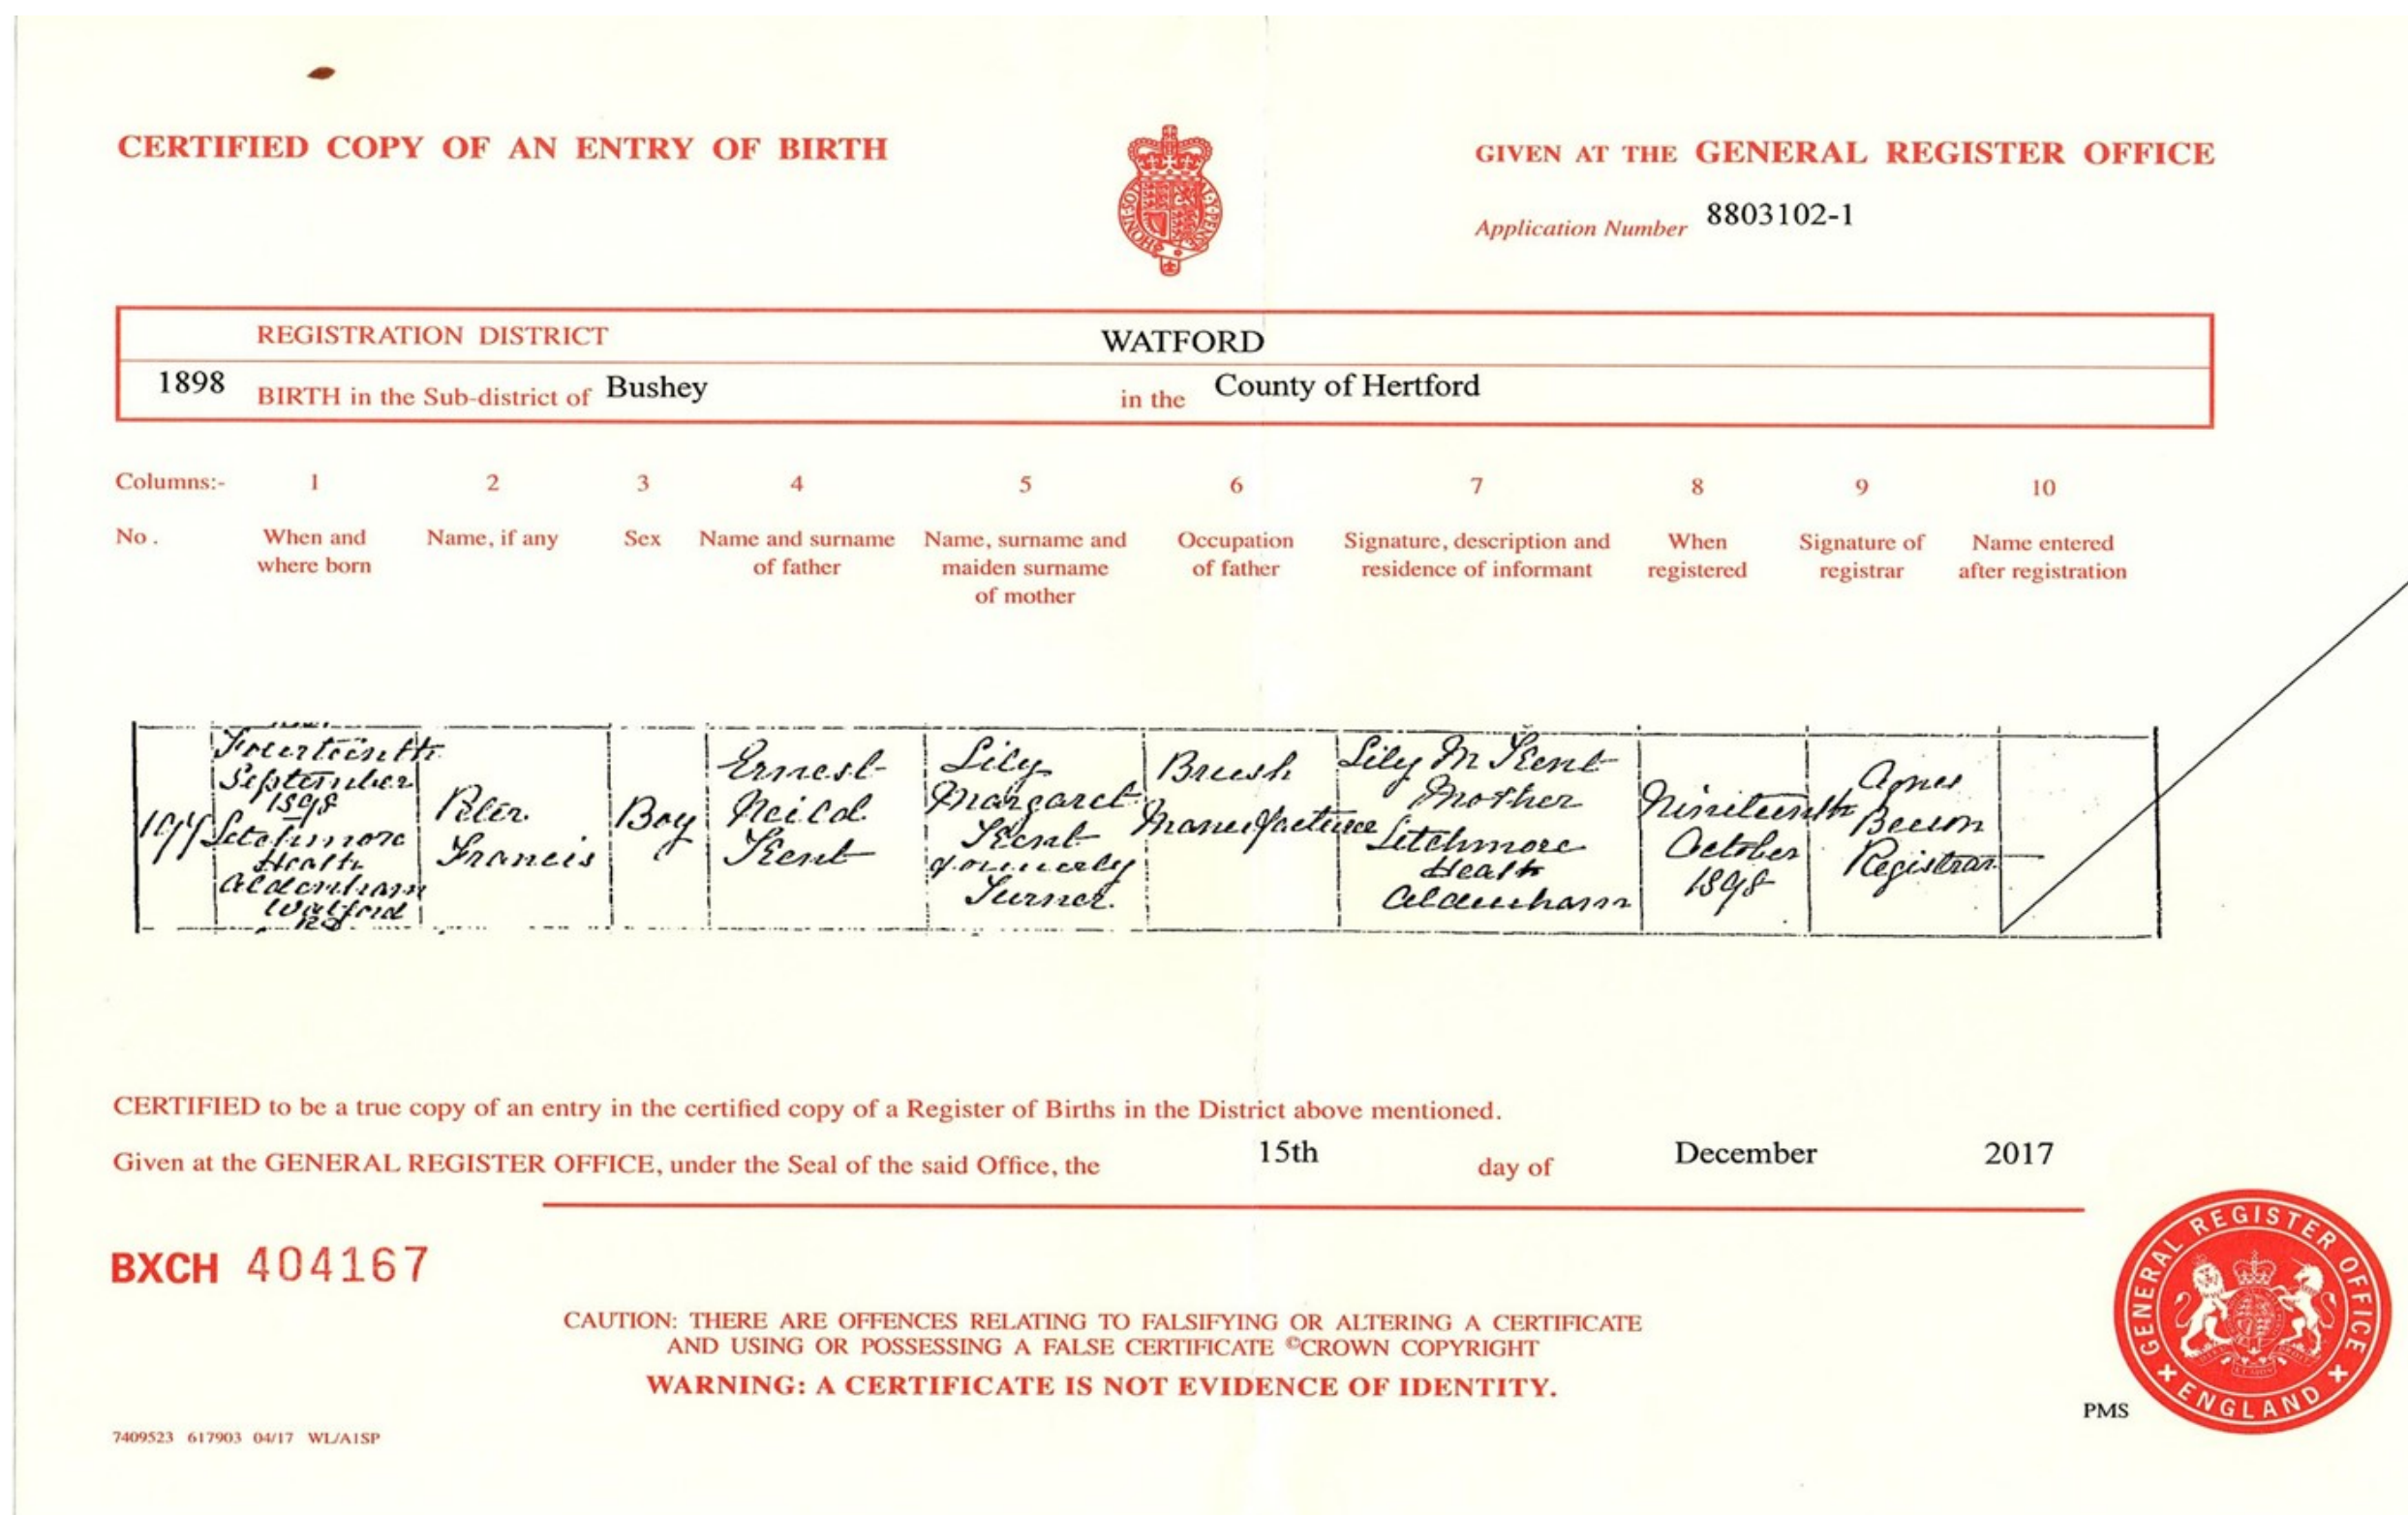 CERTIFIED COPY OF AN ENTRY OF BIRTH
GIVEN AT THE GENERAL REGISTER OFFICE
Application Number 8803102-1
REGISTRATION DISTRICT WATFORD
1898 BIRTH in the Sub-district of Bushey in the County of Hertford
Columns:- 1 2 3 4 5 6 7 8 9 10
No. When and where born
Name, if any
Sex
Name and surname
of father
Name, surname and
maiden surname
of mother
Occupation
of father
Signature, description and
residence of informant
When
registered
Signature of
registrar
Name entered
after registration
Fourteenth
September
1898
Letchmore
Heath
Aldenham
Watford
Peter
Francis
Boy
Ernest
Neild
Kent
Lily
Margaret
Kent
formerly
Turner
Brush
Manufacturer
Lily M Kent
Mother
Letchmore
Heath
Aldenham
Nineteenth
October
1898
Agnes
Registrar
CERTIFIED to be a true copy of an entry in the certified copy of a Register of Births in the District above mentioned.
Given at the GENERAL REGISTER OFFICE, under the Seal of the said Office, the 15th day of December 2017
BXCH 404167
CAUTION: THERE ARE OFFENCES RELATING TO FALSIFYING OR ALTERING A CERTIFICATE
AND USING OR POSSESSING A FALSE CERTIFICATE ©CROWN COPYRIGHT
WARNING: A CERTIFICATE IS NOT EVIDENCE OF IDENTITY.
GENERAL REGISTER OFFICE
ENGLAND
PMS
7409523 617903 04/17 WL/A1SP